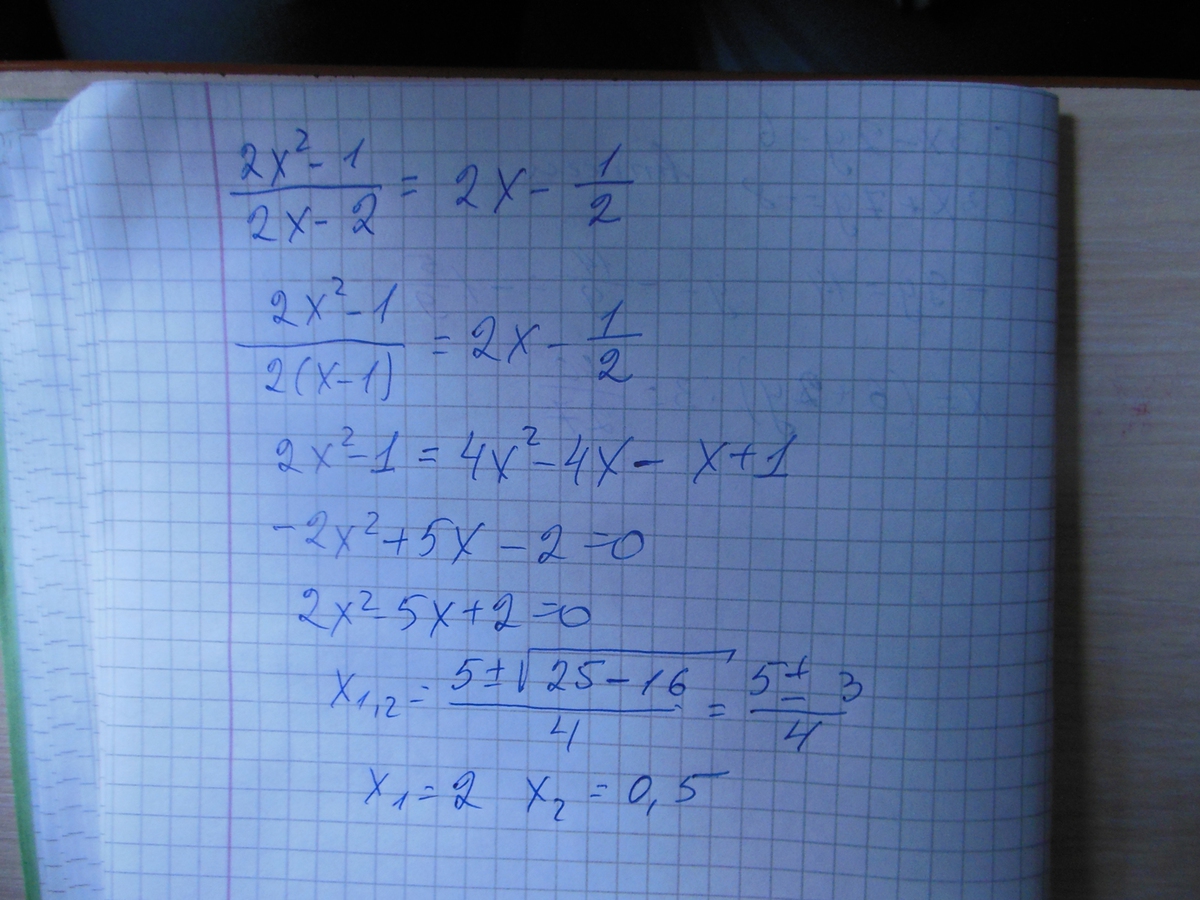 (2x² - 1)/(2x - 2) = 2x - 1/2
(2x² - 1)/(2(x - 1)) = 2x - 1/2
2x² - 1 = 4x² - 4x - x + 1
-2x² + 5x - 2 = 0
2x² - 5x + 2 = 0
x₁,₂ = (5 ± √(25 - 16))/4 = (5 ± 3)/4
x₁ = 2 x₂ = 0,5